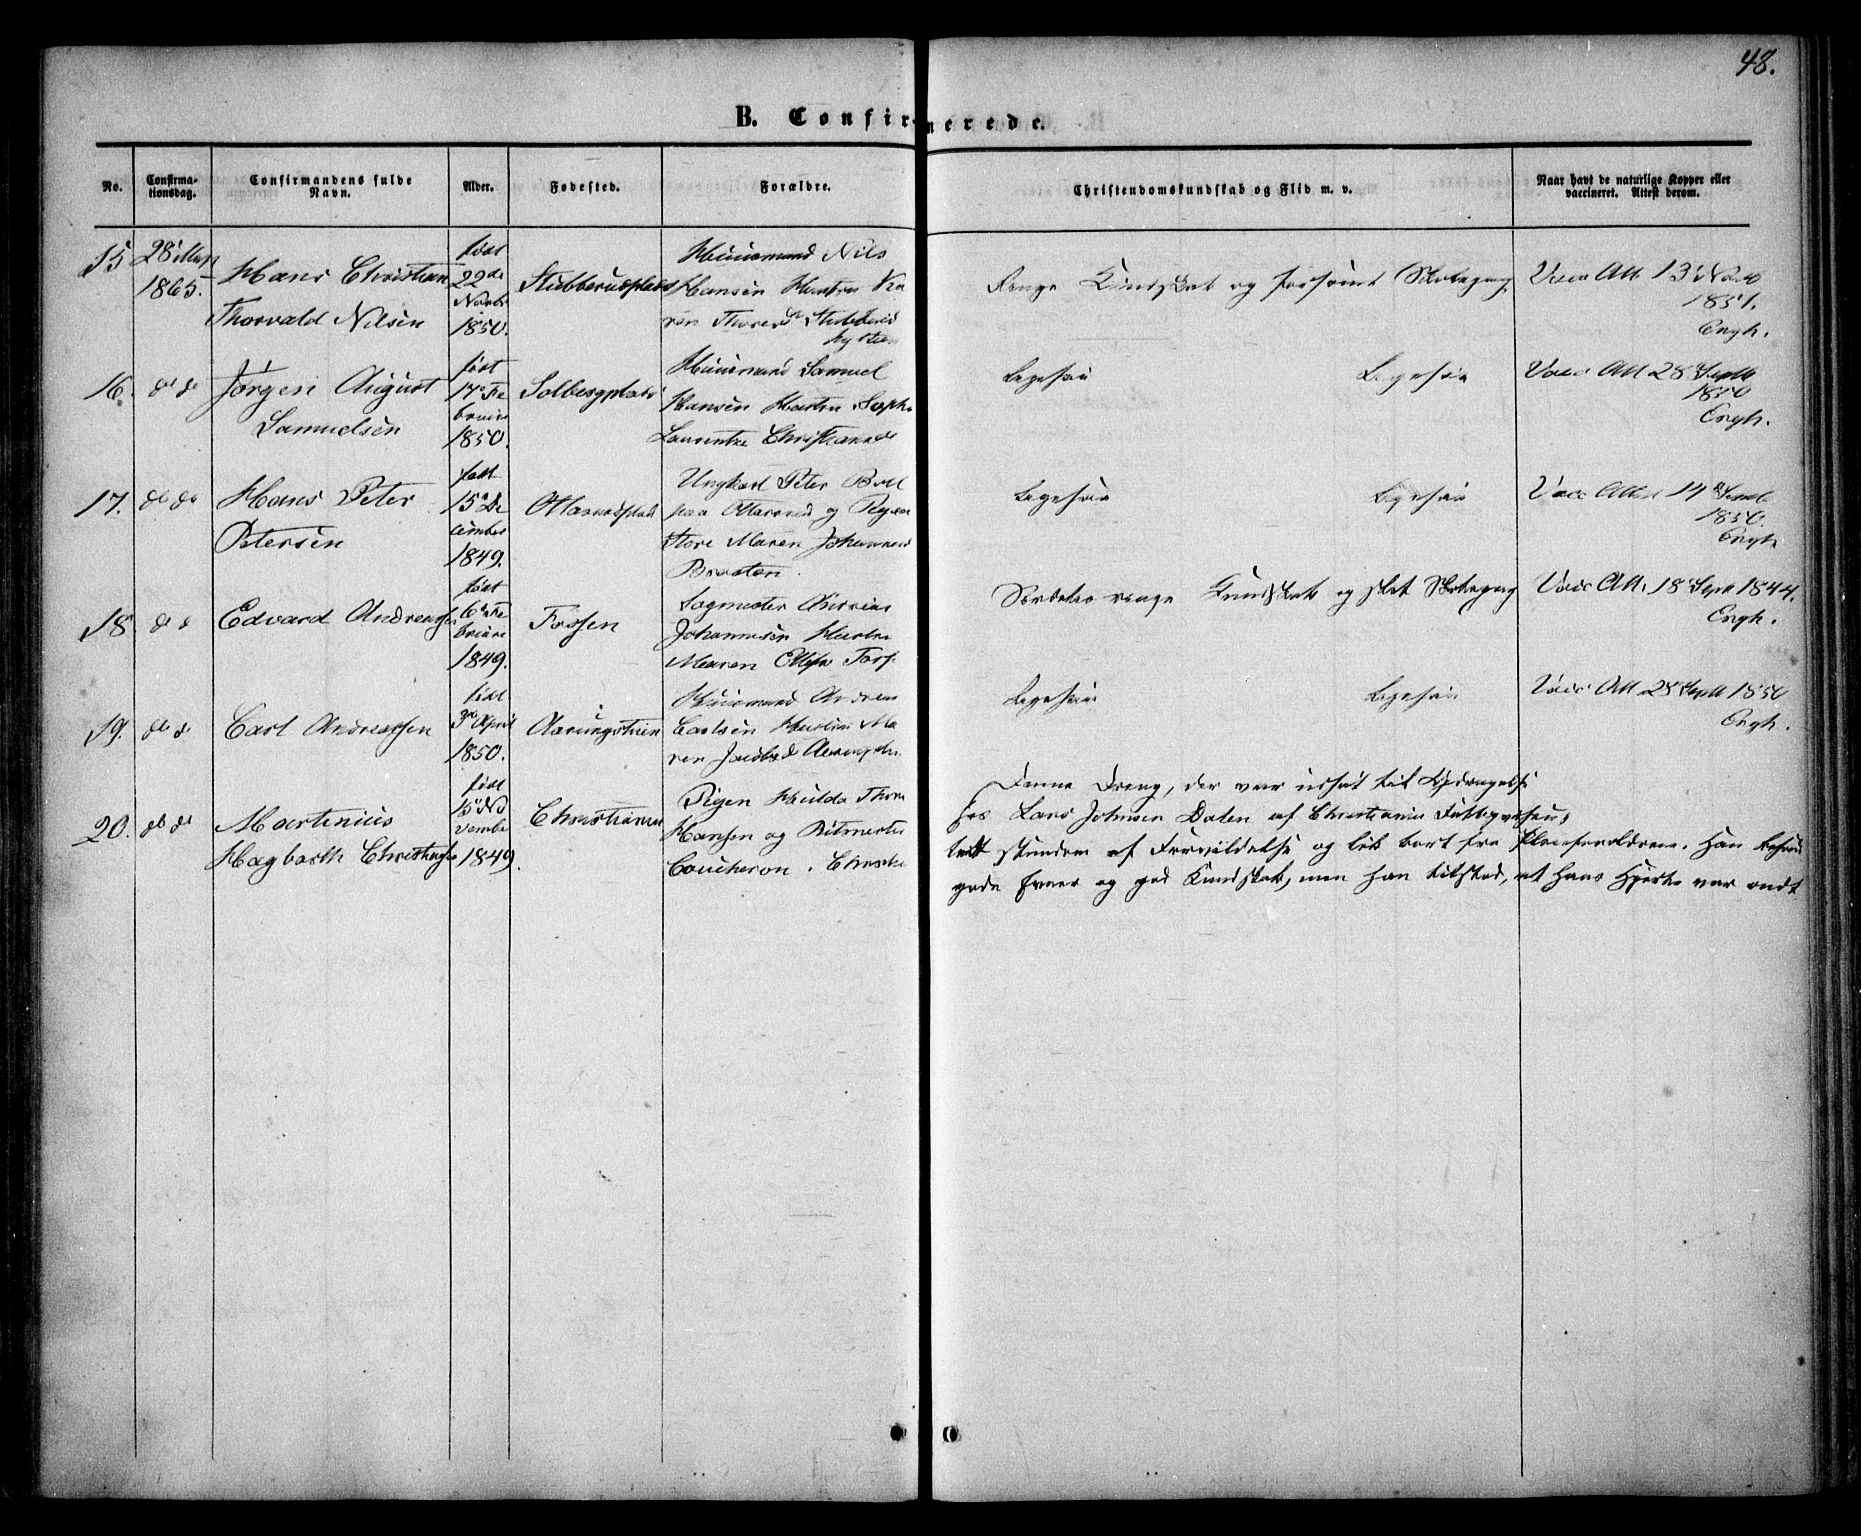 48.
B. Confirmerede.
No.
Confirma-
tionsdag.
Confirmandens fulde
Navn.
Alder.
Fødested.
Forældre.
Christendomskundskab og Flid m. v.
Naar havt de naturlige Kopper eller
vaccineret. Attest derom.
15
28
1865.
Hans Christian
Thorvald Nilsen
født
22de
1850.
Stubberudplads
Huusmand Nils
Hansen Hustru Ka
ren
Ringe Kundskab og forsømt Skolegang
Vacc Att. 13
1851.
Engh.
16.
do do
Jørgen August
Samuelsen
født
17de Fe
bruar
1850.
Solbergplads
Huusmand Samuel
Hansen Hustru Sophie
Laurentze
Ligesaa
Ligesaa
Vacc Att 28 Septb
1850
Engh.
17.
do do
Hans Peter
Petersen
født
15de De
cember
1849.
Ottarsrudplads
Ungkarl Peter
paa Ottarsrud og Pigen
Maren Johannesd
Braaten.
Ligesaa
Ligesaa
Vacc Attest 14
1850.
Engh.
18.
do d
Edvard Andreassen
født
6de Fe
bruar
1849.
Fossen
Sagmester Andreas
Johannesen Hustru
Maren
Særdeles ringe Kundskab og slet Skolegang
Vacc Att. 18 Sept 1844.
Engh.
19.
do d
Carl Andreassen
født
3de April
1850.
Aarungstuen
Huusmand Andreas
Carlsen Hustru Ma
ren Jacobsd
Ligesaa
Ligesaa
Vacc Att 28 Septb 1850
Engh.
20.
do do
Martinius
Hagbarth Christensen
født
15de No
vember
1849.
Christiania
Pigen Hulda Thora
Hansen og Ritmester
Coucheron . Christi
Denne Dreng, der var udsat til Opdragelse
hos Lars Johnsen Dalen af Christiania Fattigvæsen,
stundom af og løb bort fra Pleieforældrene. Han
gode Evner og god Kundskab, men han tilstod, at hans Hjerte var ondt